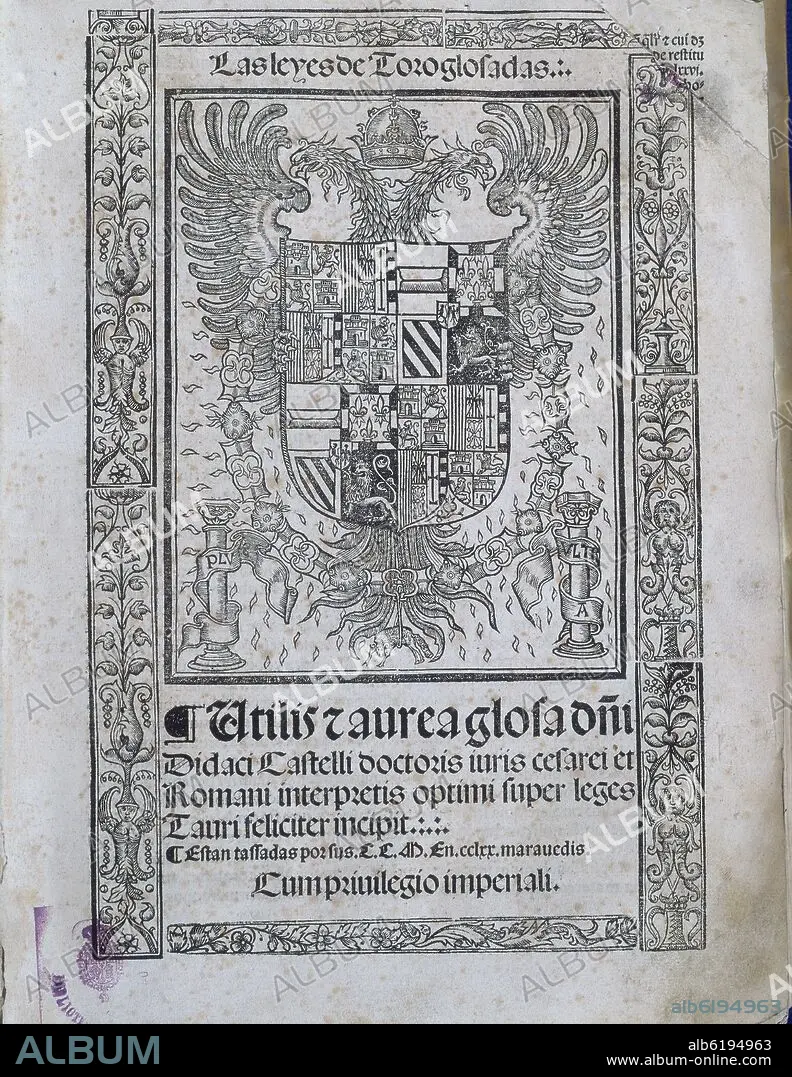 Las leyes de Toro glosadas.:.
de restitu
lxxvi.
PLV
VLTR
A
¶ Utilis ⁊ aurea glosa dñi
Didaci Castelli doctoris iuris cesarei et
Romani interpretis optimi super leges
Tauri feliciter incipit.:.:.
¶ Estan tassadas por sus. C. C. M. En. cclxx. marauedis
Cum priuilegio imperiali.
alb6194963
ALBUM
alb6194963
www.album-online.com